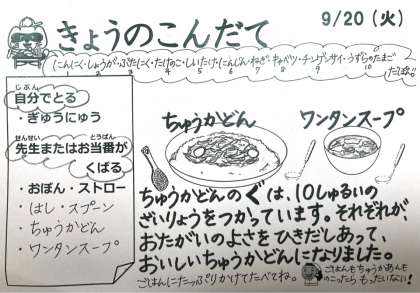 きょうのこんだて
9/20（火）
にんにく・しょうが・ぶたにく・たけのこ・しいたけ・にんじん・ねぎ・キャベツ・チンゲンサイ・うずらのたまご
1 2 3 4 5 6 7 8 9 10
だよ
じぶん
自分でとる
・ぎゅうにゅう
せんせい とうばん
先生またはお当番が
くばる
・おぼん・ストロー
・はし・スプーン
・ちゅうかどん
・ワンタンスープ
ちゅうかどん
ワンタンスープ
ちゅうかどんのぐは、10しゅるいの
ざいりょうをつかっています。それぞれが、
おたがいのよさをひきだしあって、
おいしいちゅうかどんになりました。
ごはんにたっぷりかけてたべてね。
ごはんもちゅうかあんも
のこったらもったいない!